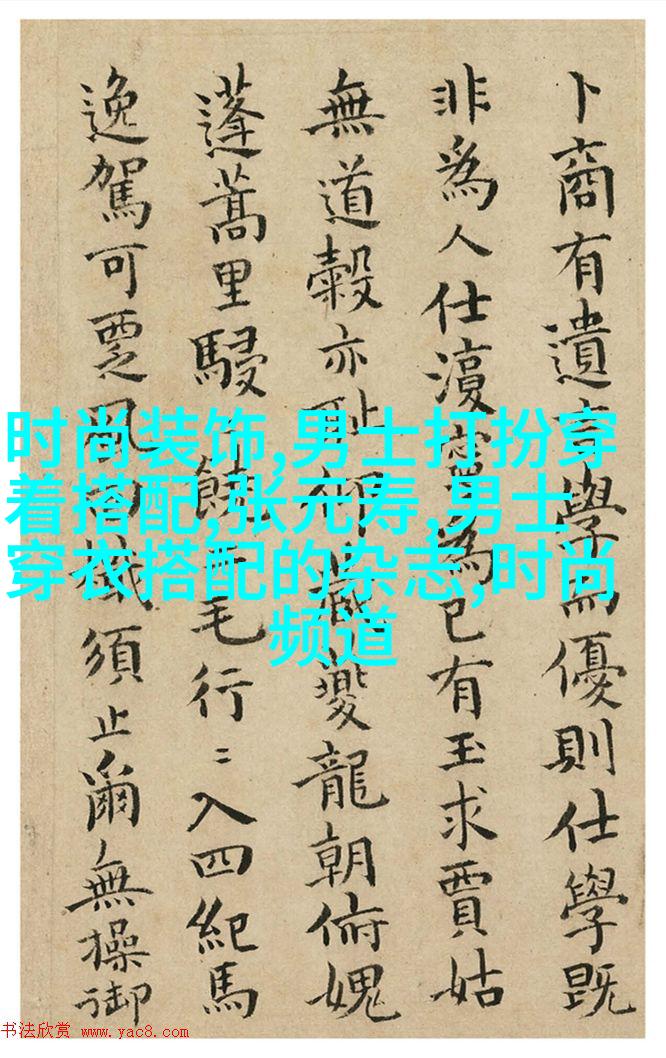 卜商有遺言學而優則仕學既
非為人仕復寧為己有玉求賈姑
無道穀亦恥仰幾夔龍朝俯媿
蓬蒿里駸毛行〻入四紀馬
逸駕可覂風檝須止爾無操御
时尚装饰,男士打扮穿
着搭配,张元寿,男士
穿衣搭配的杂志,时尚
频道
书法欣赏 www.yac8.com